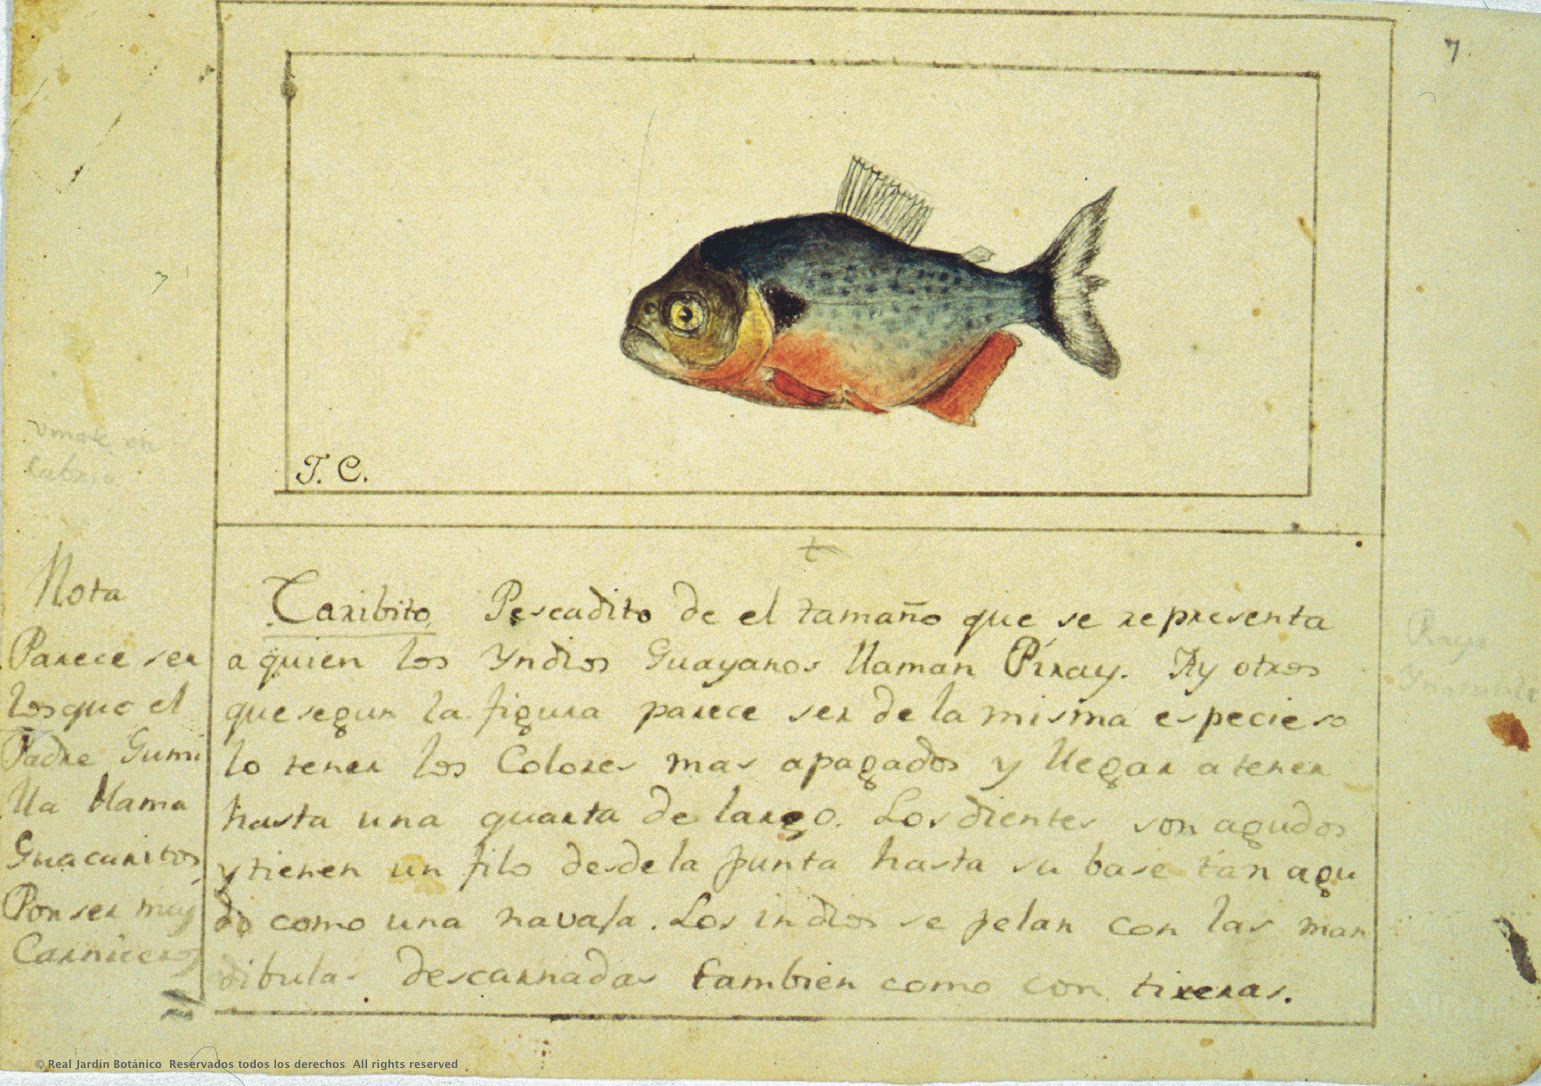 7
7
T. C.
Nota
Parece ser
los que el
Padre Gumi
lla llama
Guacaritos
Por ser muy
Carniceros
Caribito Pescadito de el tamaño que se representa
a quien los Yndios Guayanos llaman Piray. Ay otros
que segun la figura parece ser de la misma especie so
lo tener los Colores mas apagados y llegar a tener
hasta una quarta de largo. Los dientes son agudos
y tienen un filo desde la punta hasta su base tan agu
do como una navaja. Los indios se pelan con las man
dibulas descarnadas tambien como con tixeras.
© Real Jardín Botánico Reservados todos los derechos All rights reserved